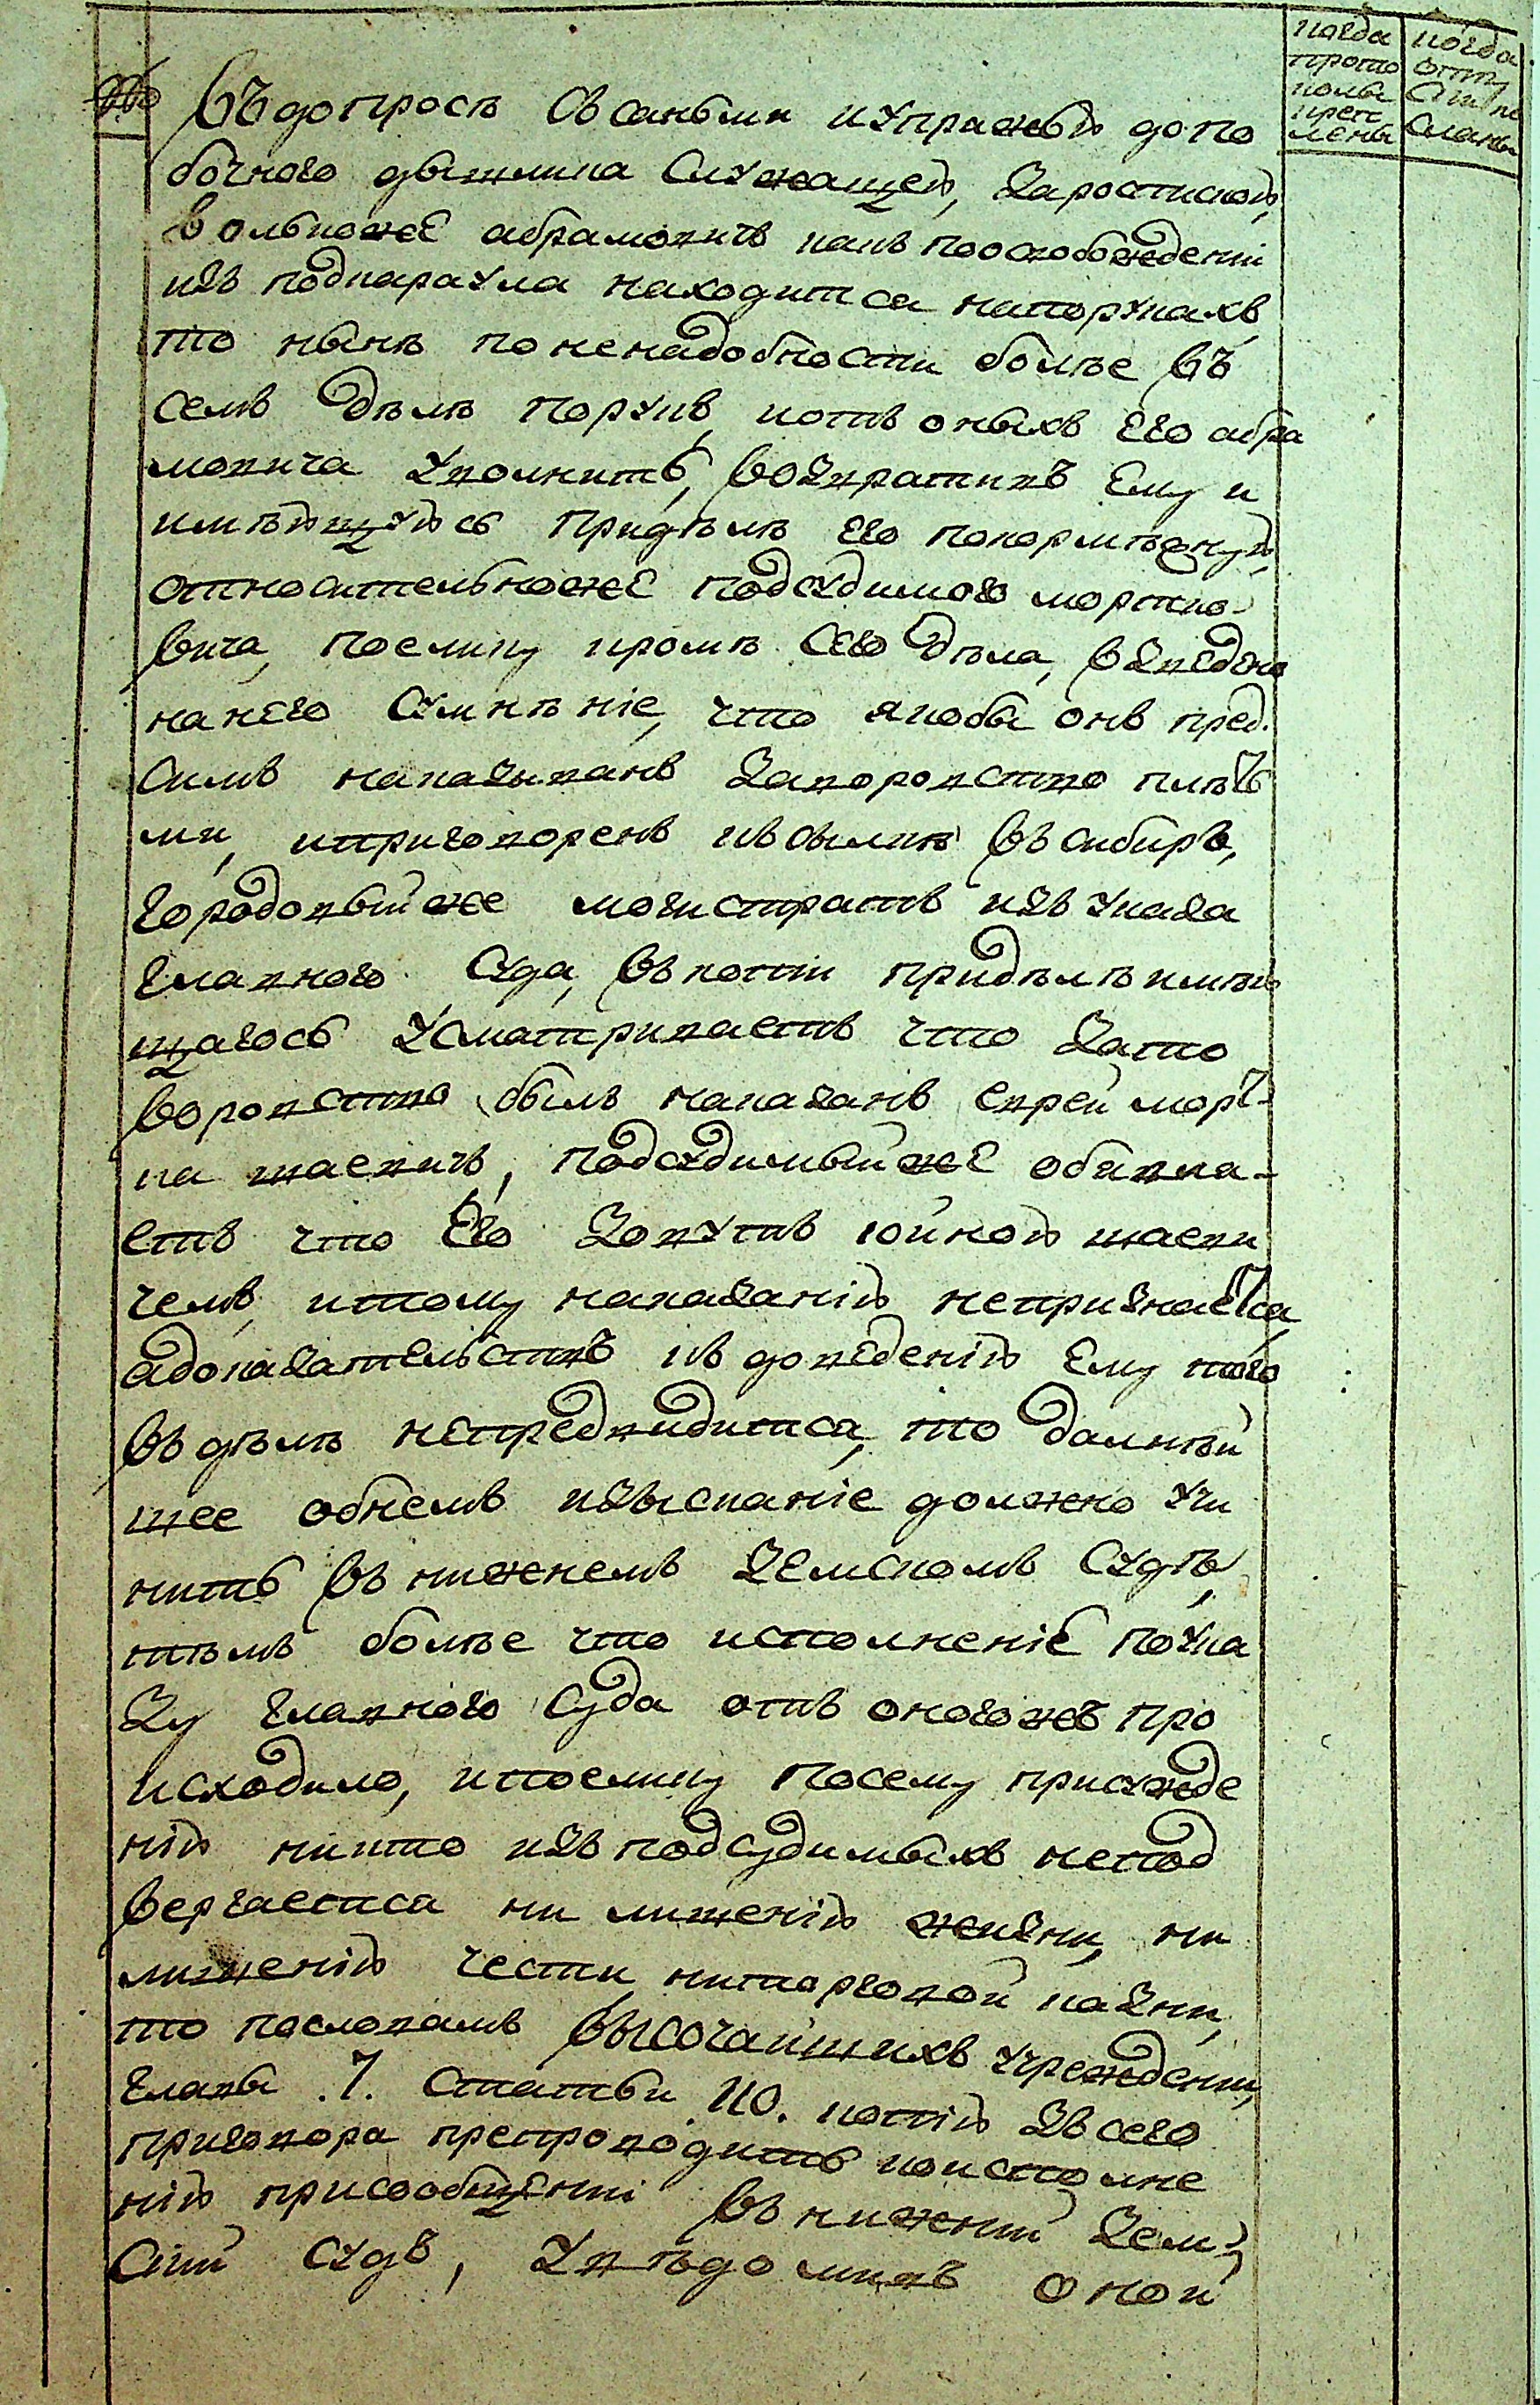 когда
прото
колы
креп
лены
когда
отпу
сланы
въдопросѣ Овсанъми иупражъю допо
бочного движлина Служащей, Заростиской,
Вольноже абрамовичъ какъ поосвобожденіи
изъ подкараула находитса напорукахъ
то нынѣ поненадобности болѣе въ
семъ дѣлѣ порукъ, иотъ оныхъ Его абра
мовича уволнить, возвративъ Ему и
имѣющуюсь придѣлѣ его покормѣжную,
относительноже подсудимого мортко-
вича, поелику кромѣ Сего дѣла, взведено
нанего Сумнѣніе, что якобы онъ пред
Симъ наказыванъ Заворовство плѣть
ми, иприговоренъ къ сылкѣ въ сибирь,
городовыйже магистратъ изъ указа
главного Суда, въ копіи придѣлѣ имѣю
щагось Усматриваетъ что Зато
воровство былъ наказанъ еврей морт-
ка шаевичъ, подсудимыйже обявла-
етъ что Его Зовутъ юйною шаеви
чемъ, итому наказанію непризнаетса
адоказательствъ къ доведенію Ему того
въ дѣлѣ непредвидитса, то далнѣй
шее обнемъ изысканіе должно учи
нить въ нижнемъ Земскомъ Судѣ,
тѣмъ болѣе что исполненіе поука
Зу главного Суда отъ оногожъ про
исходило, ипоелику посему присужде
нію никто изъ подсудимыхъ непод
вергаетса ни лишенію жизни, ни
лишенію чести, ниторговой казни,
то пословамъ высочайшихъ учрежденіи,
главы 7. статьи 110. копію Зъ сего
приговора препроводить коисполне
нію присообщеніи въ нижній Зем-
скій судъ, увѣдомивъ оной